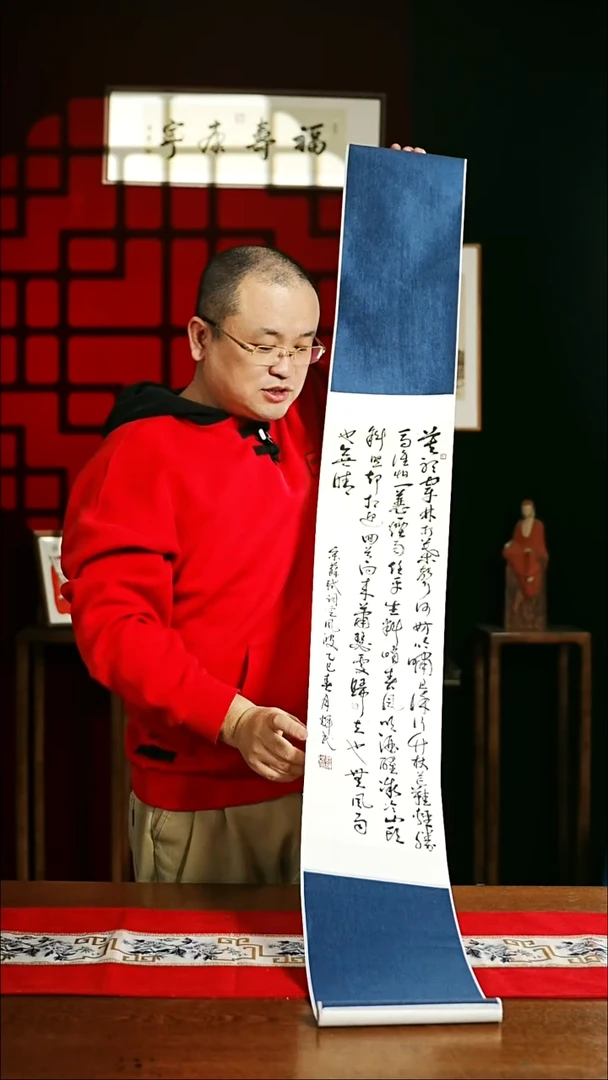 福壽康寧
莫聽穿林打葉聲何妨吟嘯且徐行竹杖芒鞋輕勝
馬誰怕一蓑煙雨任平生料峭春風吹酒醒微冷山頭
斜照却相迎回首向來蕭瑟處歸去也無風雨
也無晴
蘇軾詞定風波乙巳春月